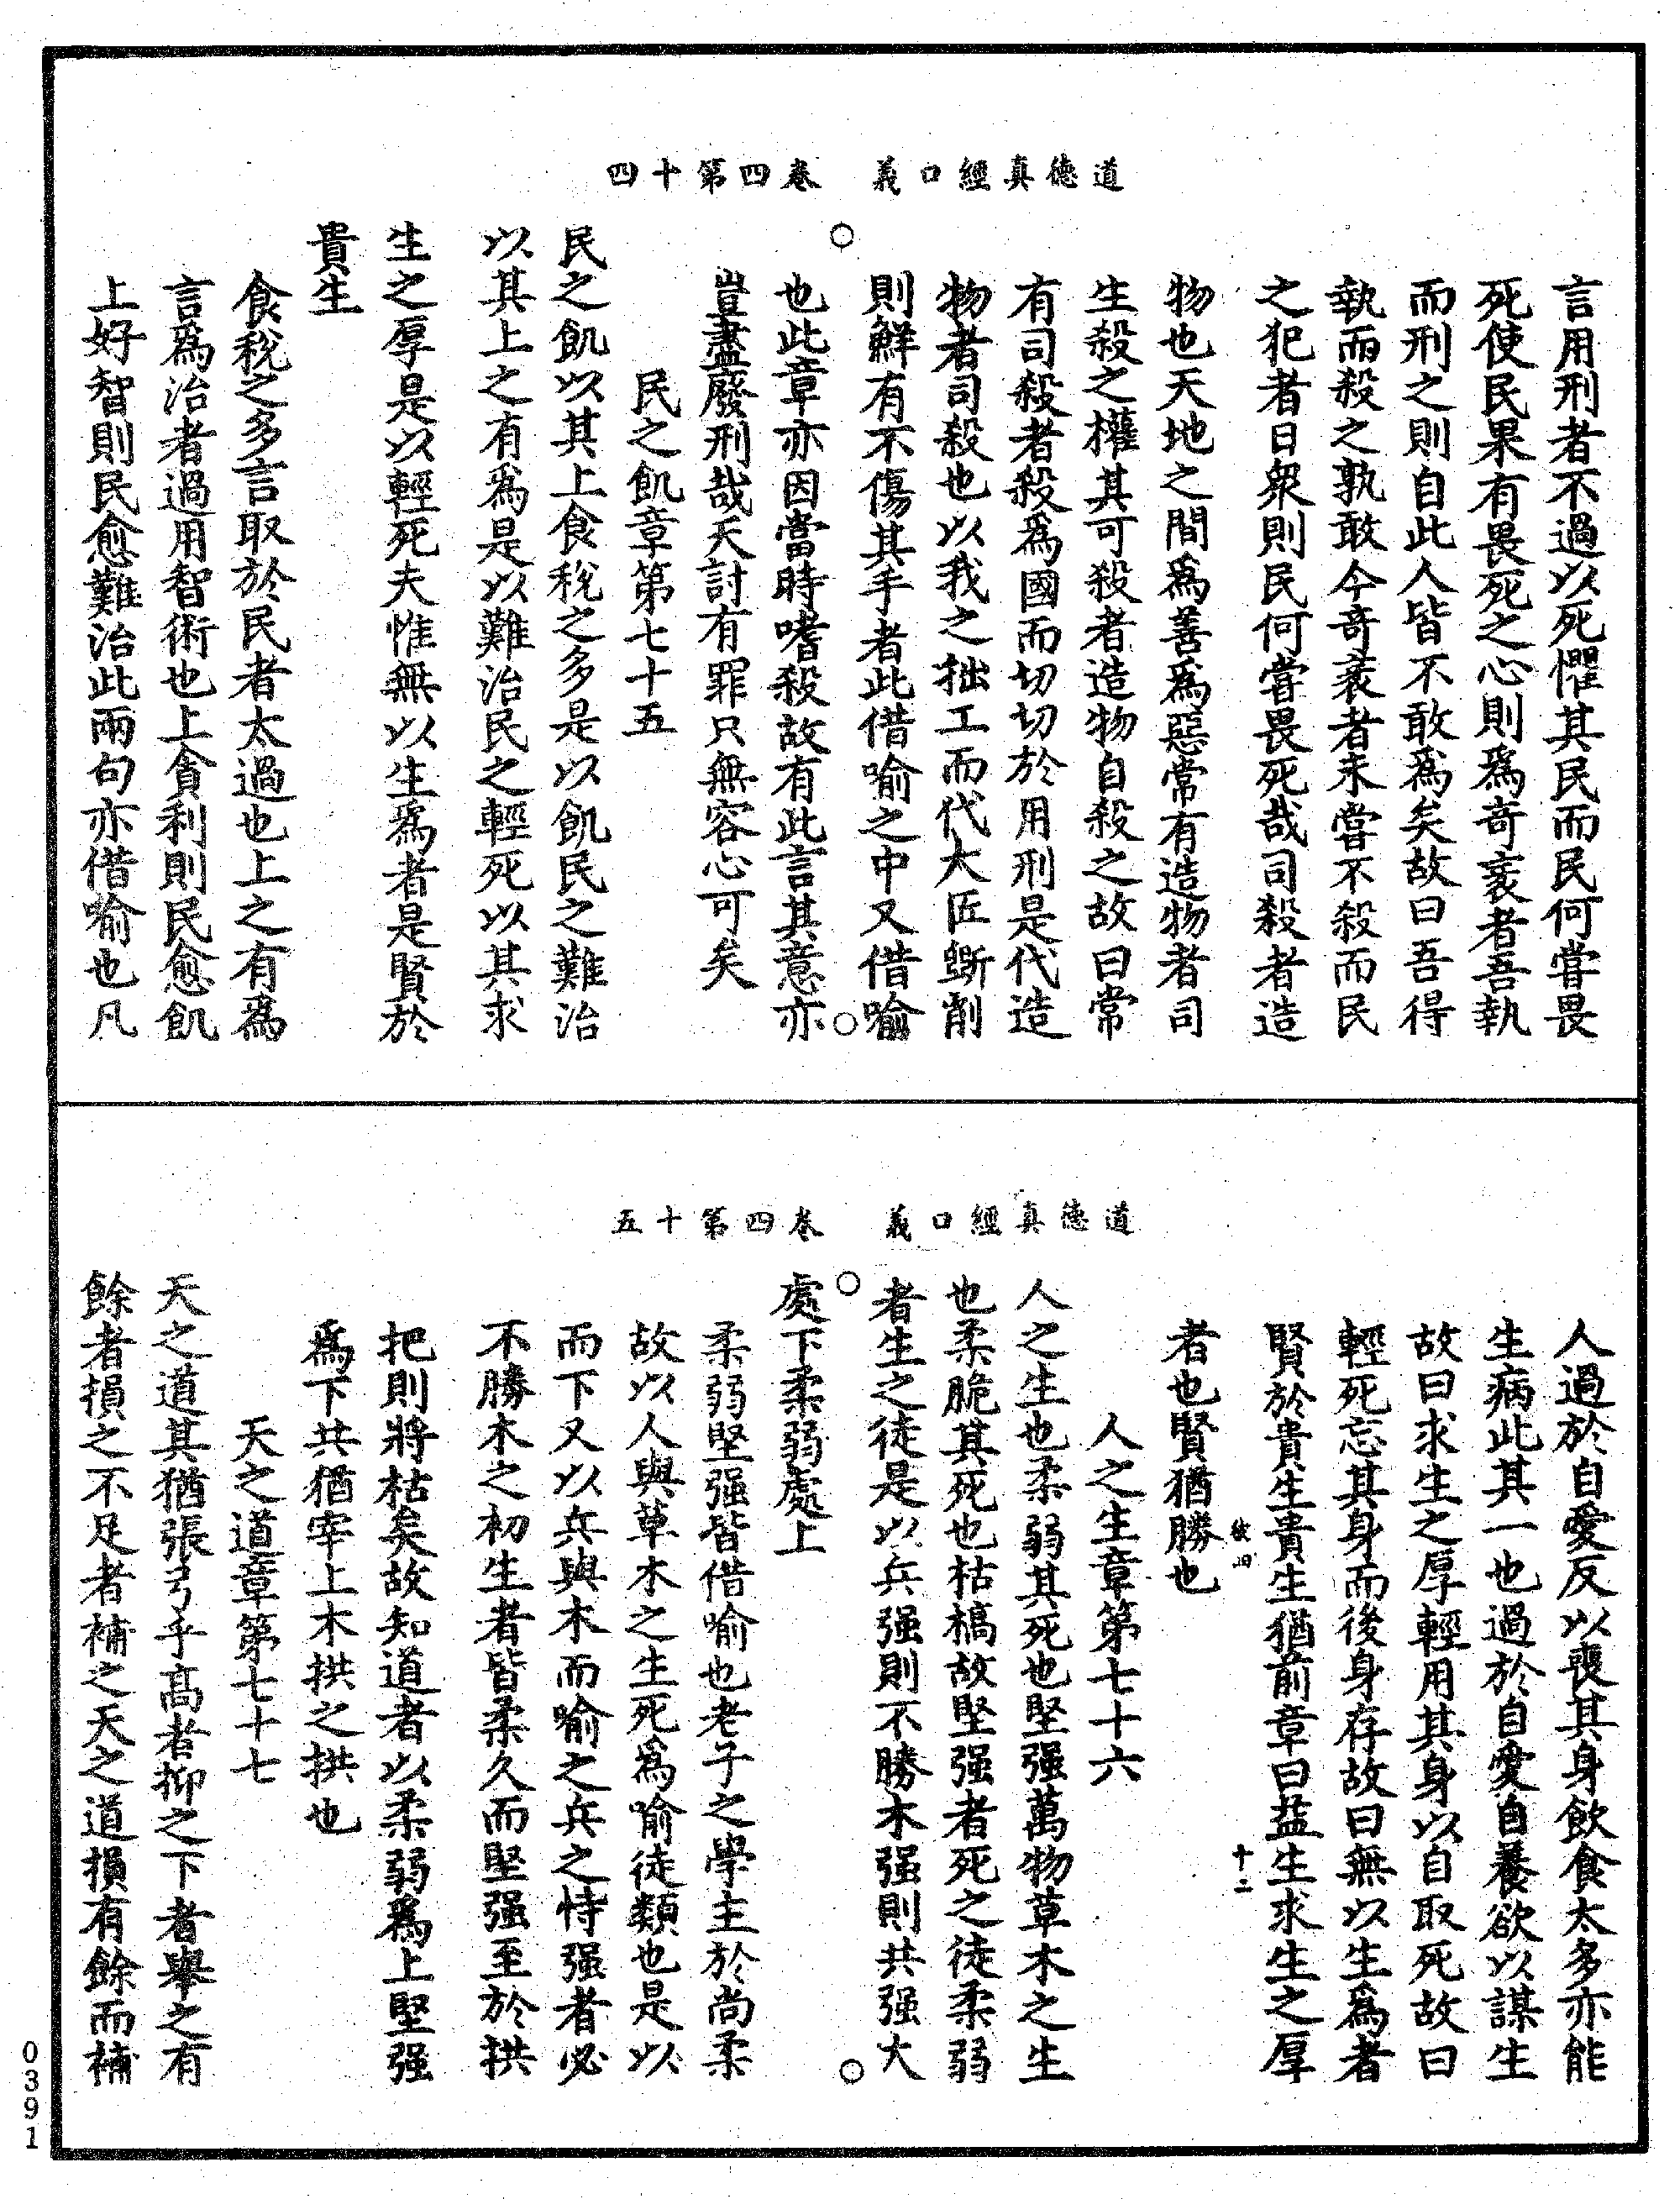 道德真經口義　卷四第十四
言用刑者不過以死懼其民而民何嘗畏
死使民果有畏死之心則爲奇衺者吾執
而刑之則自此人皆不敢爲矣故曰吾得
執而殺之孰敢今奇衺者未嘗不殺而民
之犯者日衆則民何嘗畏死哉司殺者造
物也天地之間爲善爲惡常有造物者司
生殺之權其可殺者造物自殺之故曰常
有司殺者殺爲國而切切於用刑是代造
物者司殺也以我之拙工而代大匠斲削
則鮮有不傷其手者此借喻之中又借喻
也此章亦因當時嗜殺故有此言其意亦
豈盡廢刑哉天討有罪只無容心可矣
民之飢章第七十五
民之飢以其上食稅之多是以飢民之難治
以其上之有爲是以難治民之輕死以其求
生之厚是以輕死夫惟無以生爲者是賢於
貴生
食稅之多言取於民者太過也上之有爲
言爲治者過用智術也上貪利則民愈飢
上好智則民愈難治此兩句亦借喻也凡
道德真經口義　卷四第十五
人過於自愛反以喪其身飲食太多亦能
生病此其一也過於自愛自養欲以謀生
故曰求生之厚輕用其身以自取死故曰
輕死忘其身而後身存故曰無以生爲者
賢於貴生貴生猶前章曰益生求生之厚
者也賢猶勝也
彼四　十二
人之生章第七十六
人之生也柔弱其死也堅强萬物草木之生
也柔脆其死也枯槁故堅强者死之徒柔弱
者生之徒是以兵强則不勝木强則共强大
處下柔弱處上
柔弱堅强皆借喻也老子之學主於尚柔
故以人與草木之生死爲喻徒類也是以
而下又以兵與木而喻之兵之恃强者必
不勝木之初生者皆柔久而堅强至於拱
把則將枯矣故知道者以柔弱爲上堅强
爲下共猶宰上木拱之拱也
天之道章第七十七
天之道其猶張弓乎高者抑之下者舉之有
餘者損之不足者補之天之道損有餘而補
0391